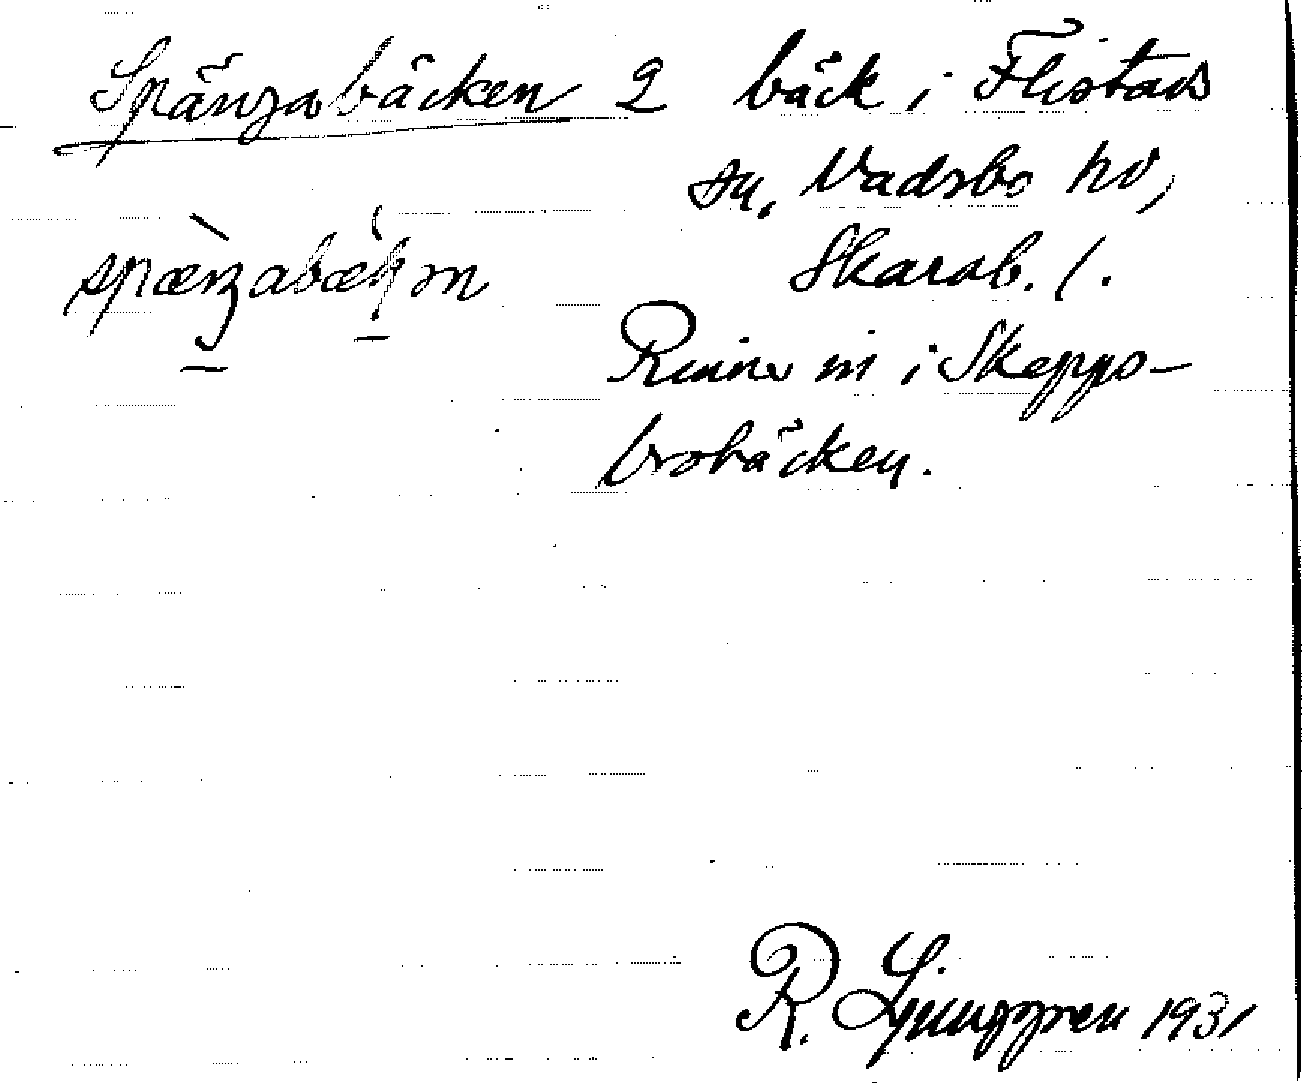 Spångabäcken 2 bäck i Flistads
sn, Vadsbo hd,
Skarab. l.
Rinner in i Skepps-
brobäcken.
R. Ljunggren 1931